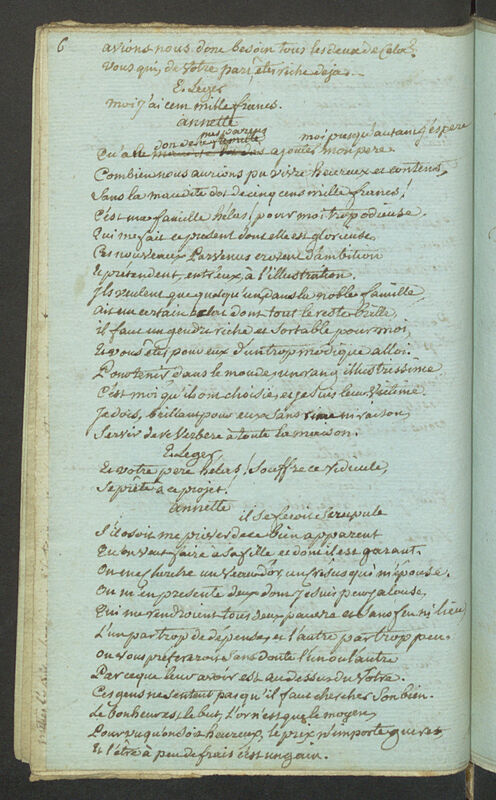 6
avions nous donc besoin tous les deux de cela?
Vous qui, de votre part êtes riche déja.
E. Léger
moi j'ai cent mille francs.
annette
moi jusqu'autant j'espere
mes parens
don de
Qu'a le ajoutes mon pere.
Combien nous aurions pu vivre heureux et contens,
Sans la maudite dot de cinq cens mille francs!
C'est ma famille hélas! pour moi trop odieuse
Qui me fait ce present dont elle est glorieuse,
Ces nouveaux Parvenus crevent d'ambition
Et pretendent, entr'eux, à l'illustration.
Ils veulent que quelqu'un, dans la noble famille,
ait un certain éclat dont tout le reste brille,
il faut un gendre riche et sortable pour moi,
Et vous êtes pour eux d'un trop modique alloi.
Pour tenir dans le monde un rang illustrissime
C'est moi qu'ils ont choisie, et je suis leur victime.
Je dois, brillant pour eux sans rime ni raison,
Servir de réverbere à toute la maison.
E. Leger
Et votre pere hélas! souffre ce ridicule,
Se prête à ce projet!
annette
il se feroit scrupule
S'il osoit me priver de ce bien apparent
Qu'on veut faire à sa fille et dont il est garant.
On me cherche un veau d'or, un Crésus qui m'épouse.
On m'en presente deux dont je suis peu jalouse,
Qui me rendroient tous deux pauvre et sans feu ni lieu
L'un par trop de depense, et l'autre par trop peu.
on vous préferera sans doute l'un ou l'autre
Parceque leur avoir est au dessus du Votre.
Ces gens ne sentent pas qu'il faut chercher son bien.
Le bonheur est le but, L'or n'est que le moyen,
Pourvu qu'on soit heureux, le prix n'importe gueres
Et l'être à peu de frais c'est un gain.